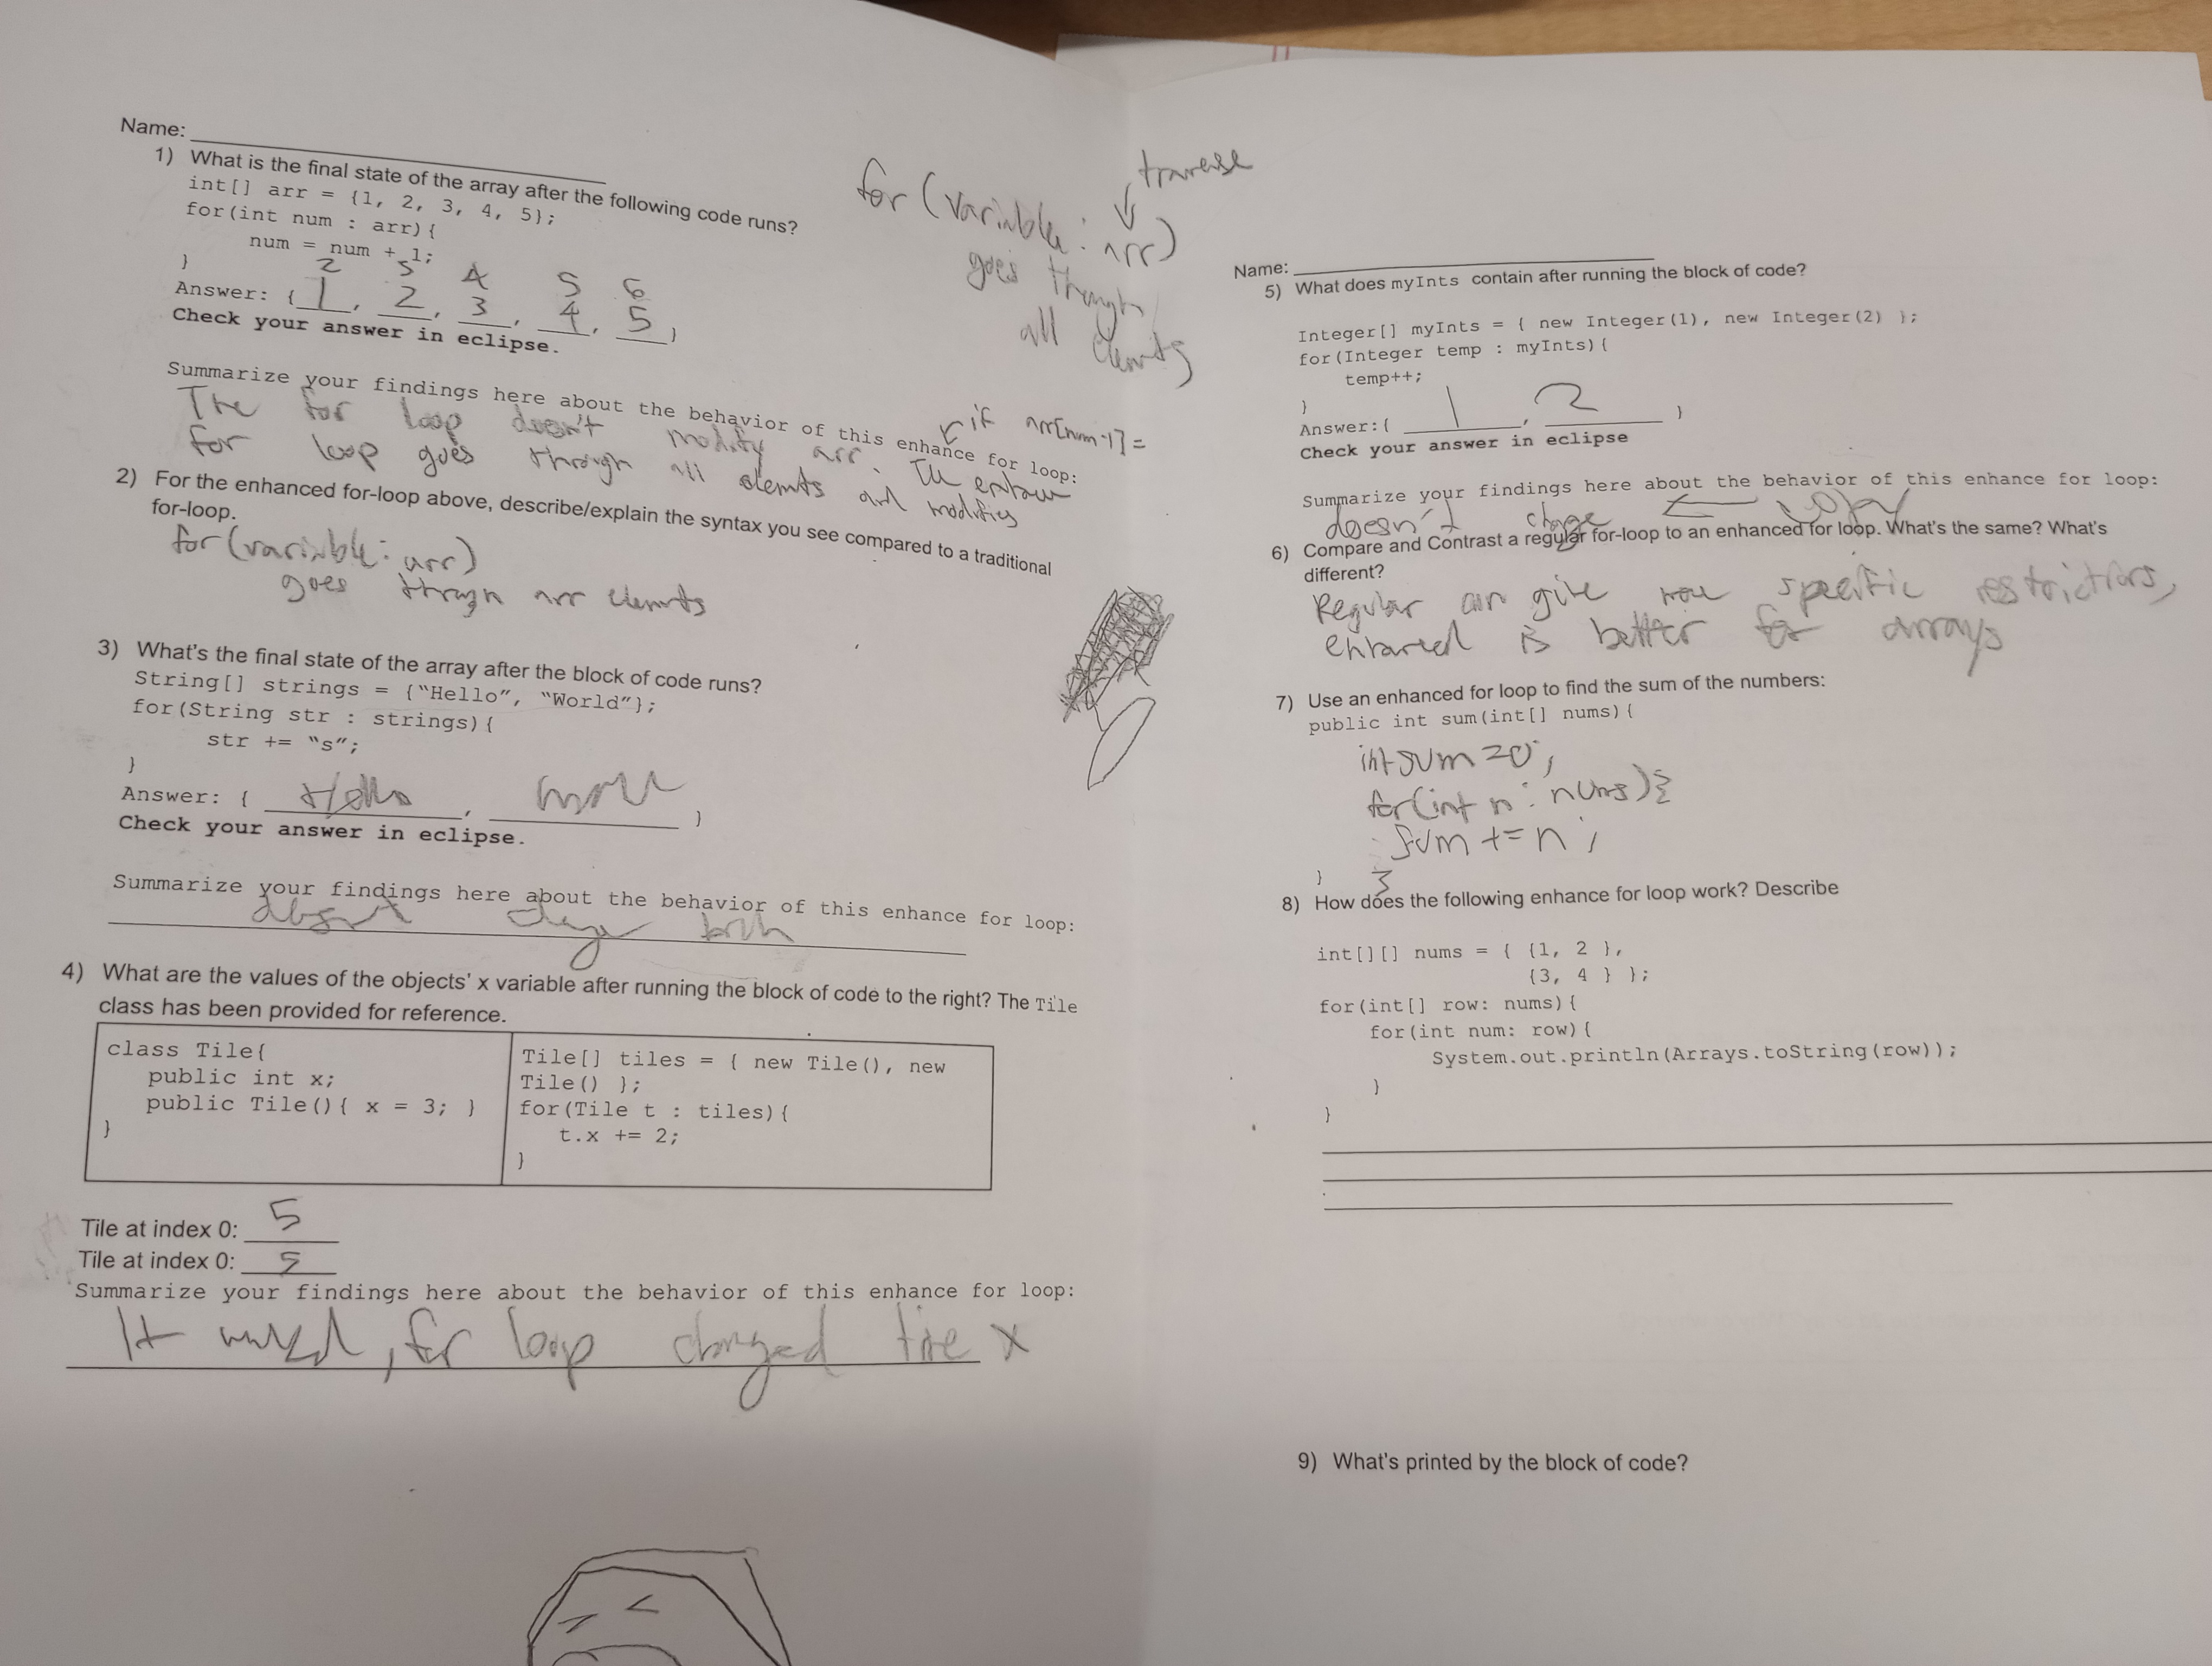 Name:
1) What is the final state of the array after the following code runs?
int[] arr = {1, 2, 3, 4, 5};
for(int num : arr){
num = num + 1;
}
2 3 4 5 6
Answer: { 1, 2, 3, 4, 5 }
Check your answer in eclipse.
Summarize your findings here about the behavior of this enhance for loop:
The for loop doesn't modify arr. The
for loop goes through all elemts and modifies
if arr[num-1] =
for (variable : arr)
traverse
goes through
all elemnts
2) For the enhanced for-loop above, describe/explain the syntax you see compared to a traditional
for-loop.
for (variable : arr)
goes through arr elemnts
3) What's the final state of the array after the block of code runs?
String[] strings = {“Hello”, “World”};
for(String str : strings){
str += “s”;
}
Answer: { Hello, }
Check your answer in eclipse.
Summarize your findings here about the behavior of this enhance for loop:
change
4) What are the values of the objects' x variable after running the block of code to the right? The Tile
class has been provided for reference.
class Tile{
public int x;
public Tile(){ x = 3; }
}
Tile[] tiles = { new Tile(), new
Tile() };
for(Tile t : tiles){
t.x += 2;
}
Tile at index 0: 5
Tile at index 0: 5
Summarize your findings here about the behavior of this enhance for loop:
It , for loop changed the x
Name:
5) What does myInts contain after running the block of code?
Integer[] myInts = { new Integer(1), new Integer(2) };
for(Integer temp : myInts){
temp++;
}
Answer:{ 1, 2 }
Check your answer in eclipse
Summarize your findings here about the behavior of this enhance for loop:
doesn't change
6) Compare and Contrast a regular for-loop to an enhanced for loop. What's the same? What's
different?
Regular can give more specific restrictions,
enhanced is better for arrays
7) Use an enhanced for loop to find the sum of the numbers:
public int sum(int[] nums){
int sum = 0;
for(int n : nums){
sum += n;
}
}
8) How does the following enhance for loop work? Describe
int[][] nums = { {1, 2 },
{3, 4 } };
for(int[] row: nums){
for(int num: row){
System.out.println(Arrays.toString(row));
}
}
9) What's printed by the block of code?